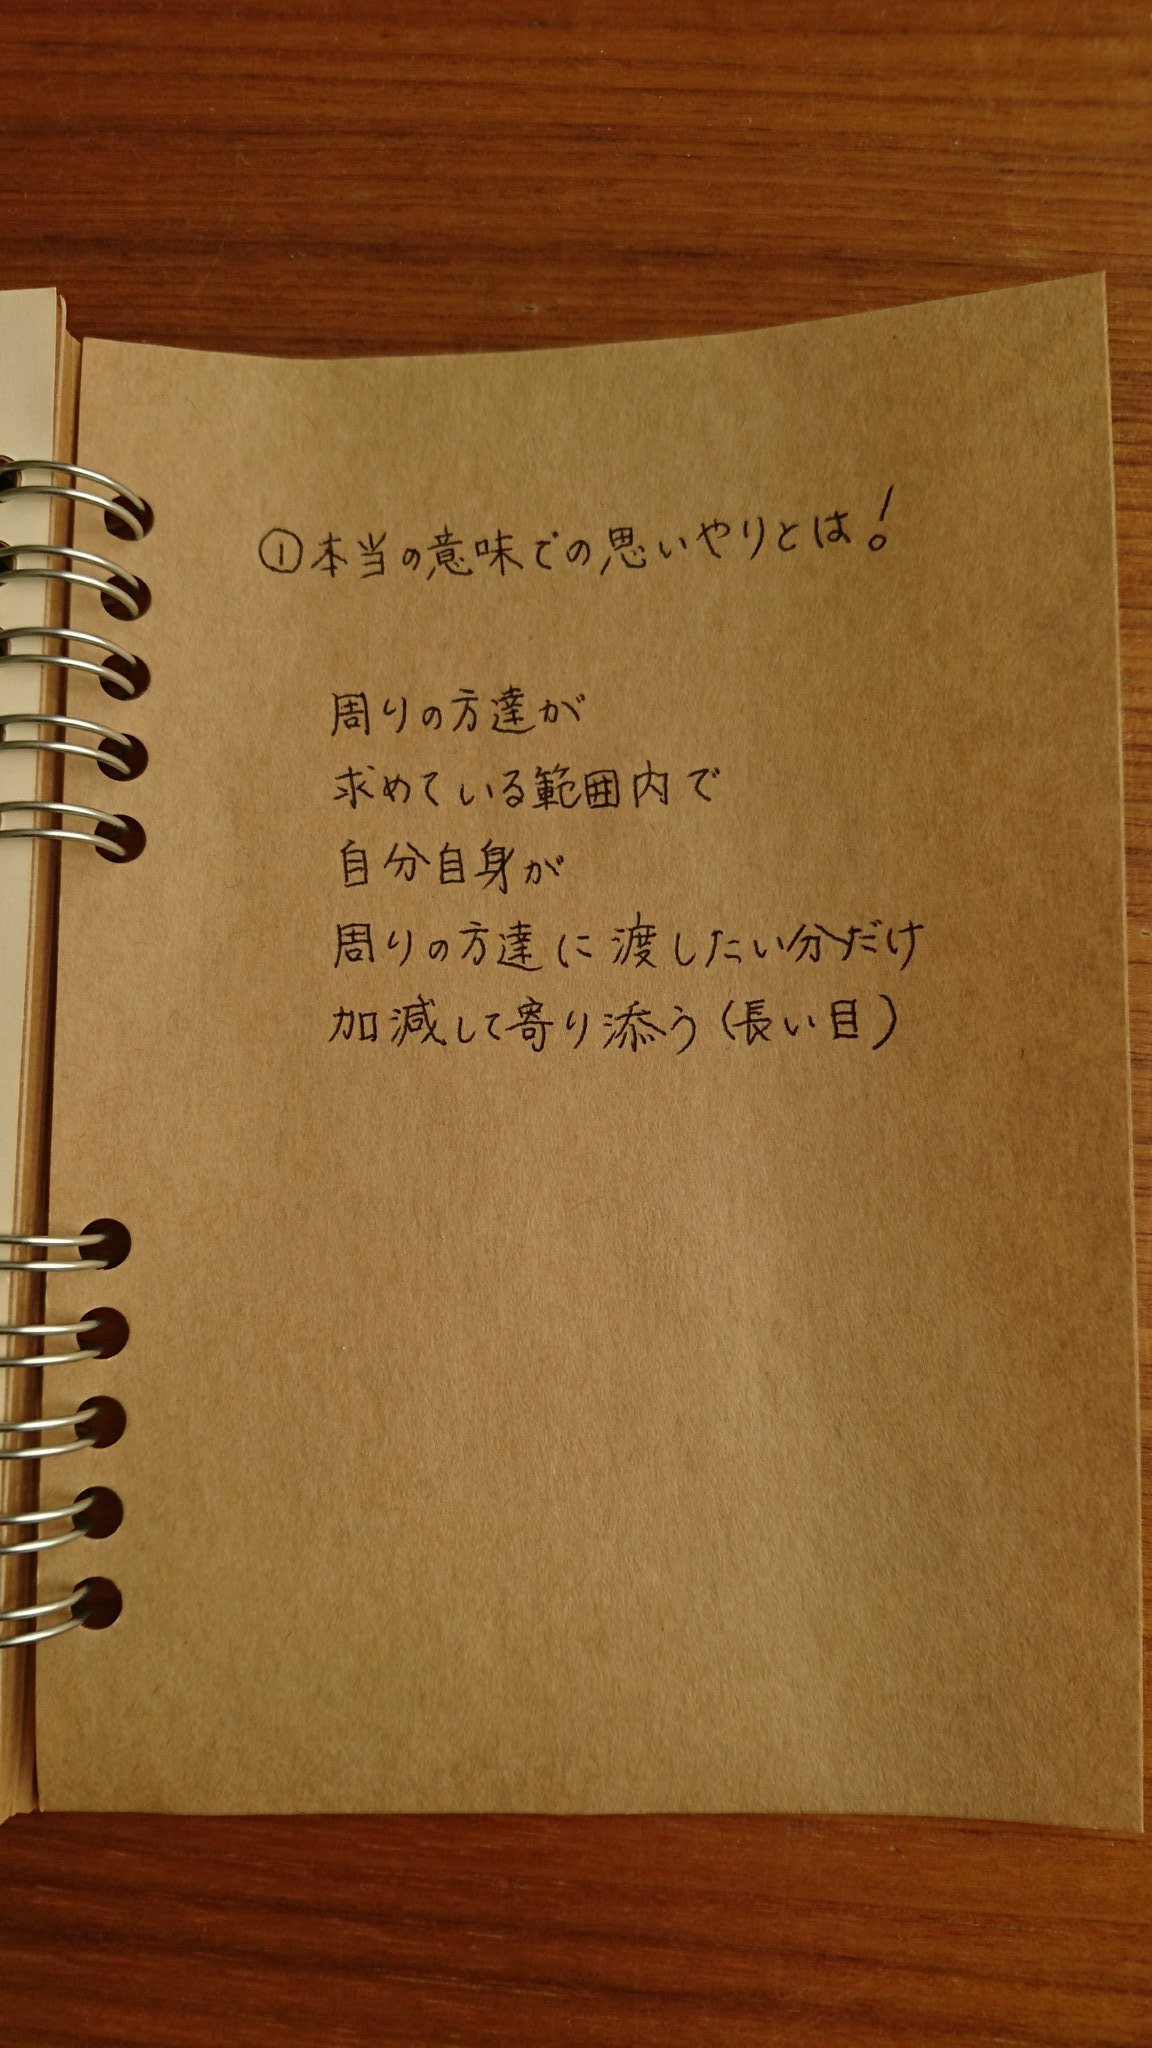 ①本当の意味での思いやりとは!
周りの方達が
求めている範囲内で
自分自身が
周りの方達に渡したい分だけ
加減して寄り添う(長い目)